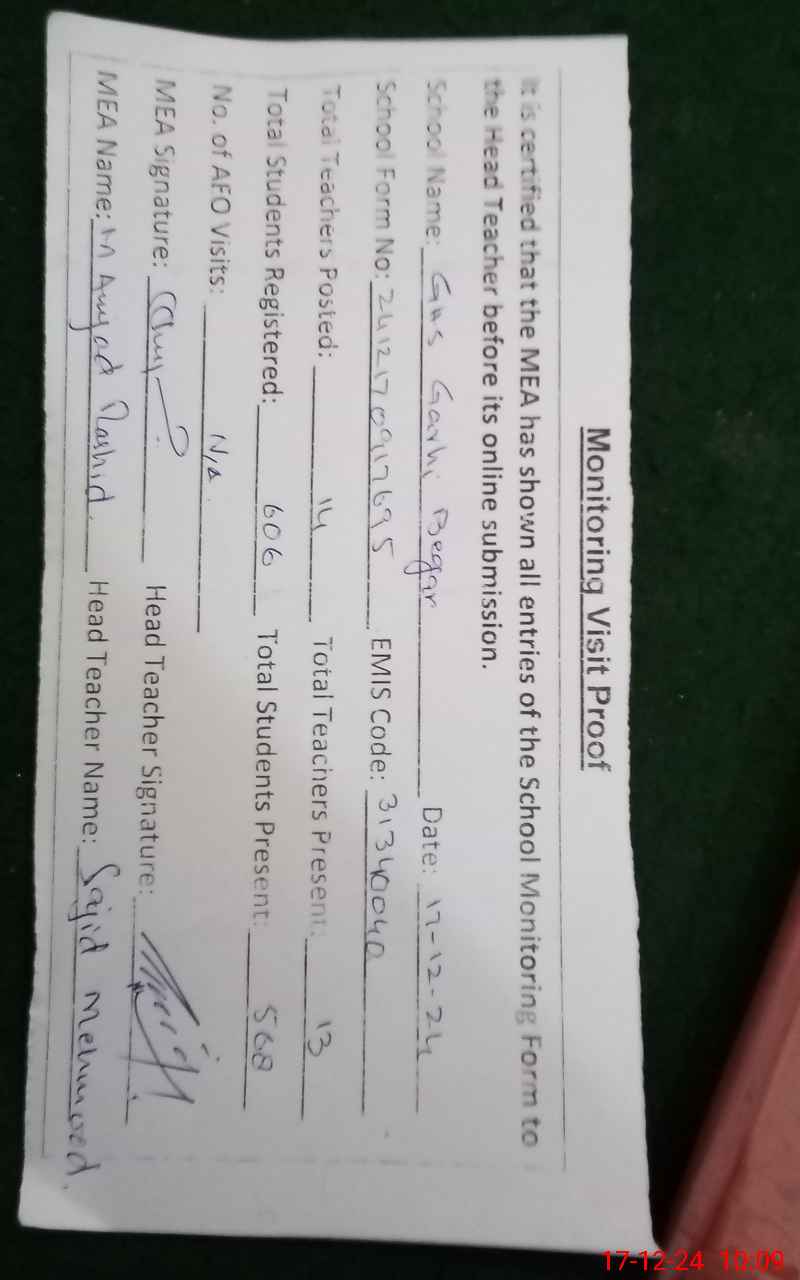 Monitoring Visit Proof
It is certified that the MEA has shown all entries of the School Monitoring Form to
the Head Teacher before its online submission.
School Name: GHS Garhi Begar Date: 17-12-24
School Form No: 2412170917695 EMIS Code: 31340040
Total Teachers Posted: 14 Total Teachers Present: 13
Total Students Registered: 606 Total Students Present: 568
No. of AFO Visits: N/A
MEA Signature: Head Teacher Signature:
MEA Name: M Amjad Rashid Head Teacher Name: Sajid Mehmood
17-12-24 10:09